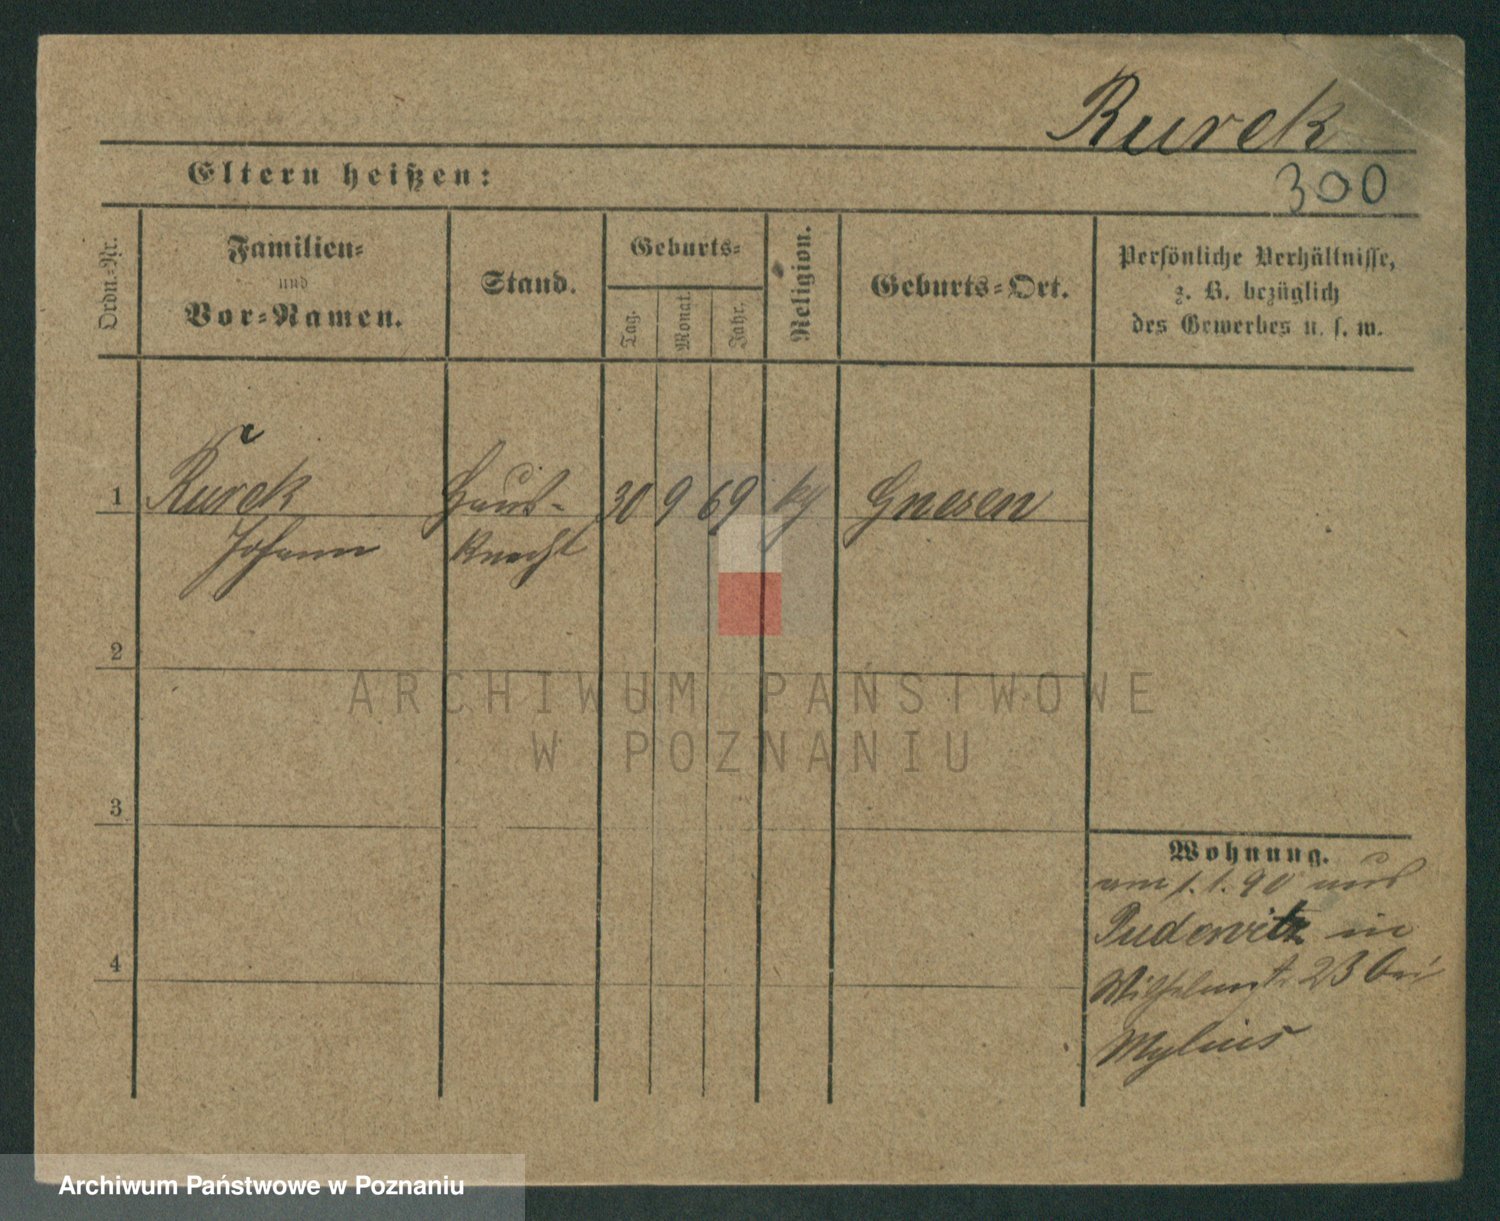 Rurek
Eltern heißen:
300
Ordn.-Nr.
Familien-
und
Vor-Namen.
Stand.
Geburts-
Tag.
Monat.
Jahr.
Religion.
Geburts-Ort.
Persönliche Verhältnisse,
z. B. bezüglich
des Gewerbes u. s. w.
1 Rurek Haus- 30 9 69 Gnesen
Johann knecht
2
ARCHIWUM PAŃSTWOWE
W POZNANIU
3
Wohnung.
am 1. 1. 90 aus
Pudewitz in
Wilhelmstr 23 bei
4
Mylius
Archiwum Państwowe w Poznaniu